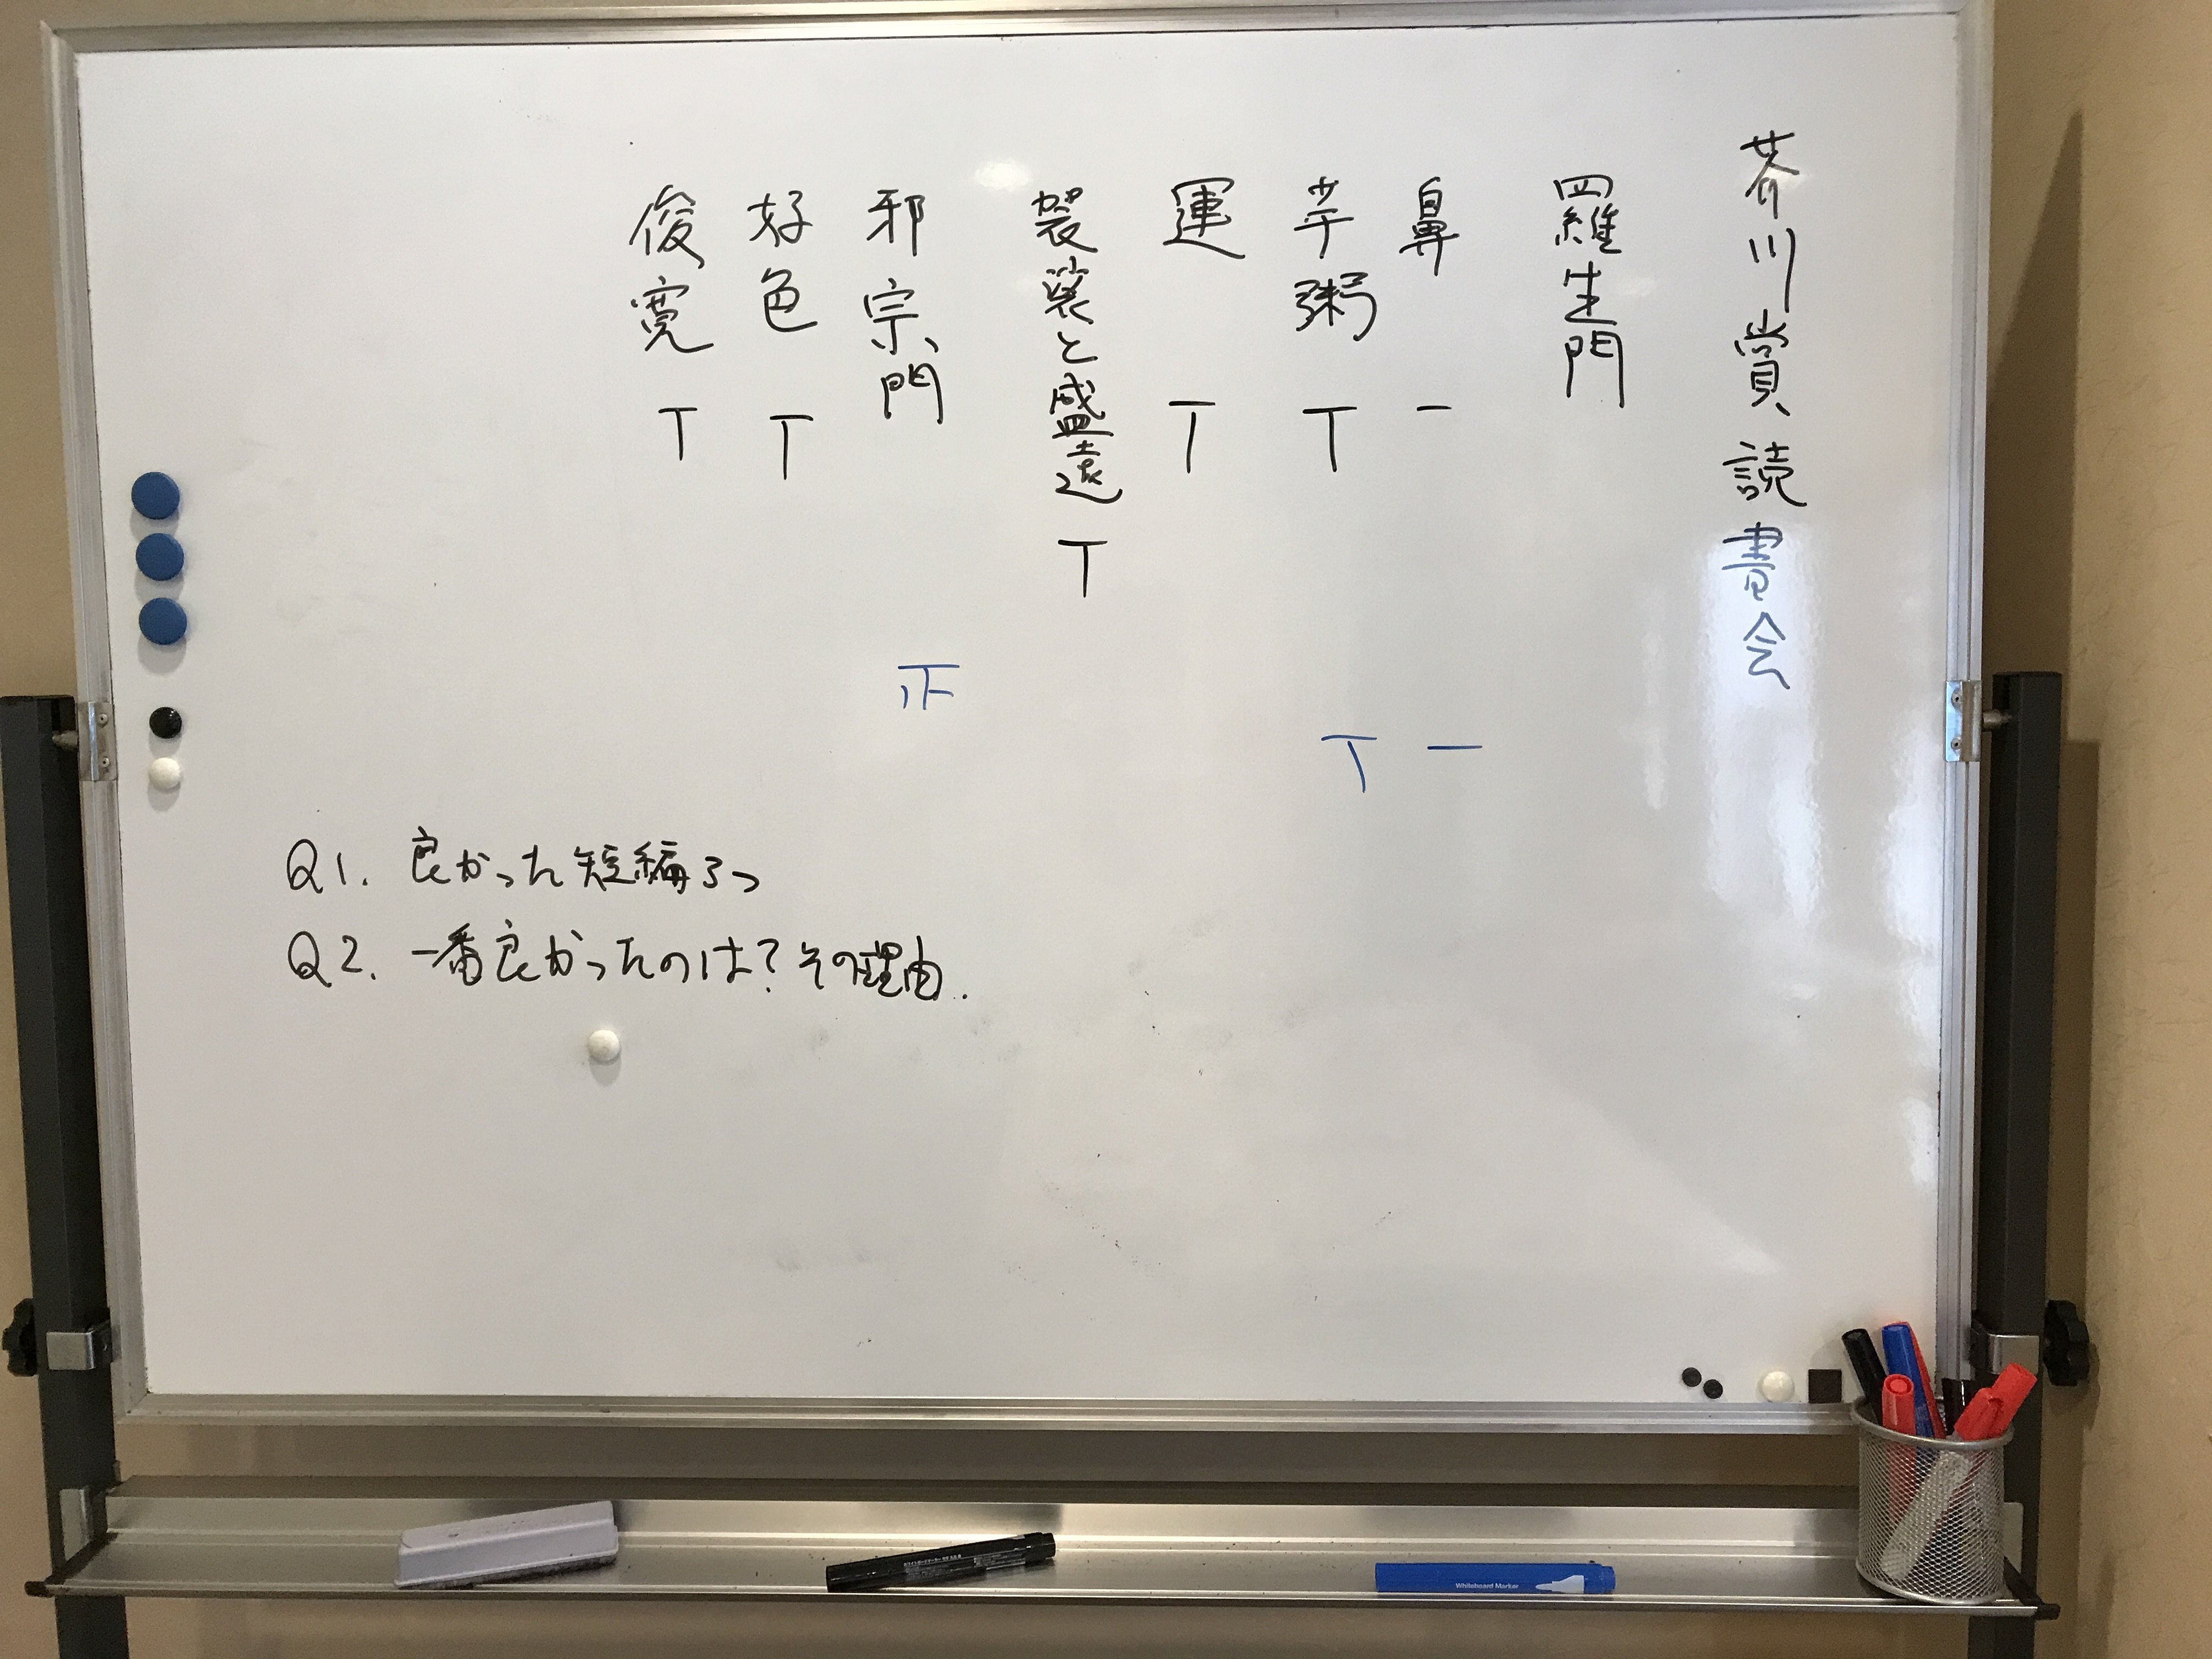 芥川賞読書会
羅生門
鼻 一
芋粥 丅
運 丅
袈裟と盛遠 丅
邪宗門
好色 丅
俊寛 丅
一
丅
正
Q1. 良かった短編3つ
Q2. 一番良かったのは？その理由.
Whiteboard Marker